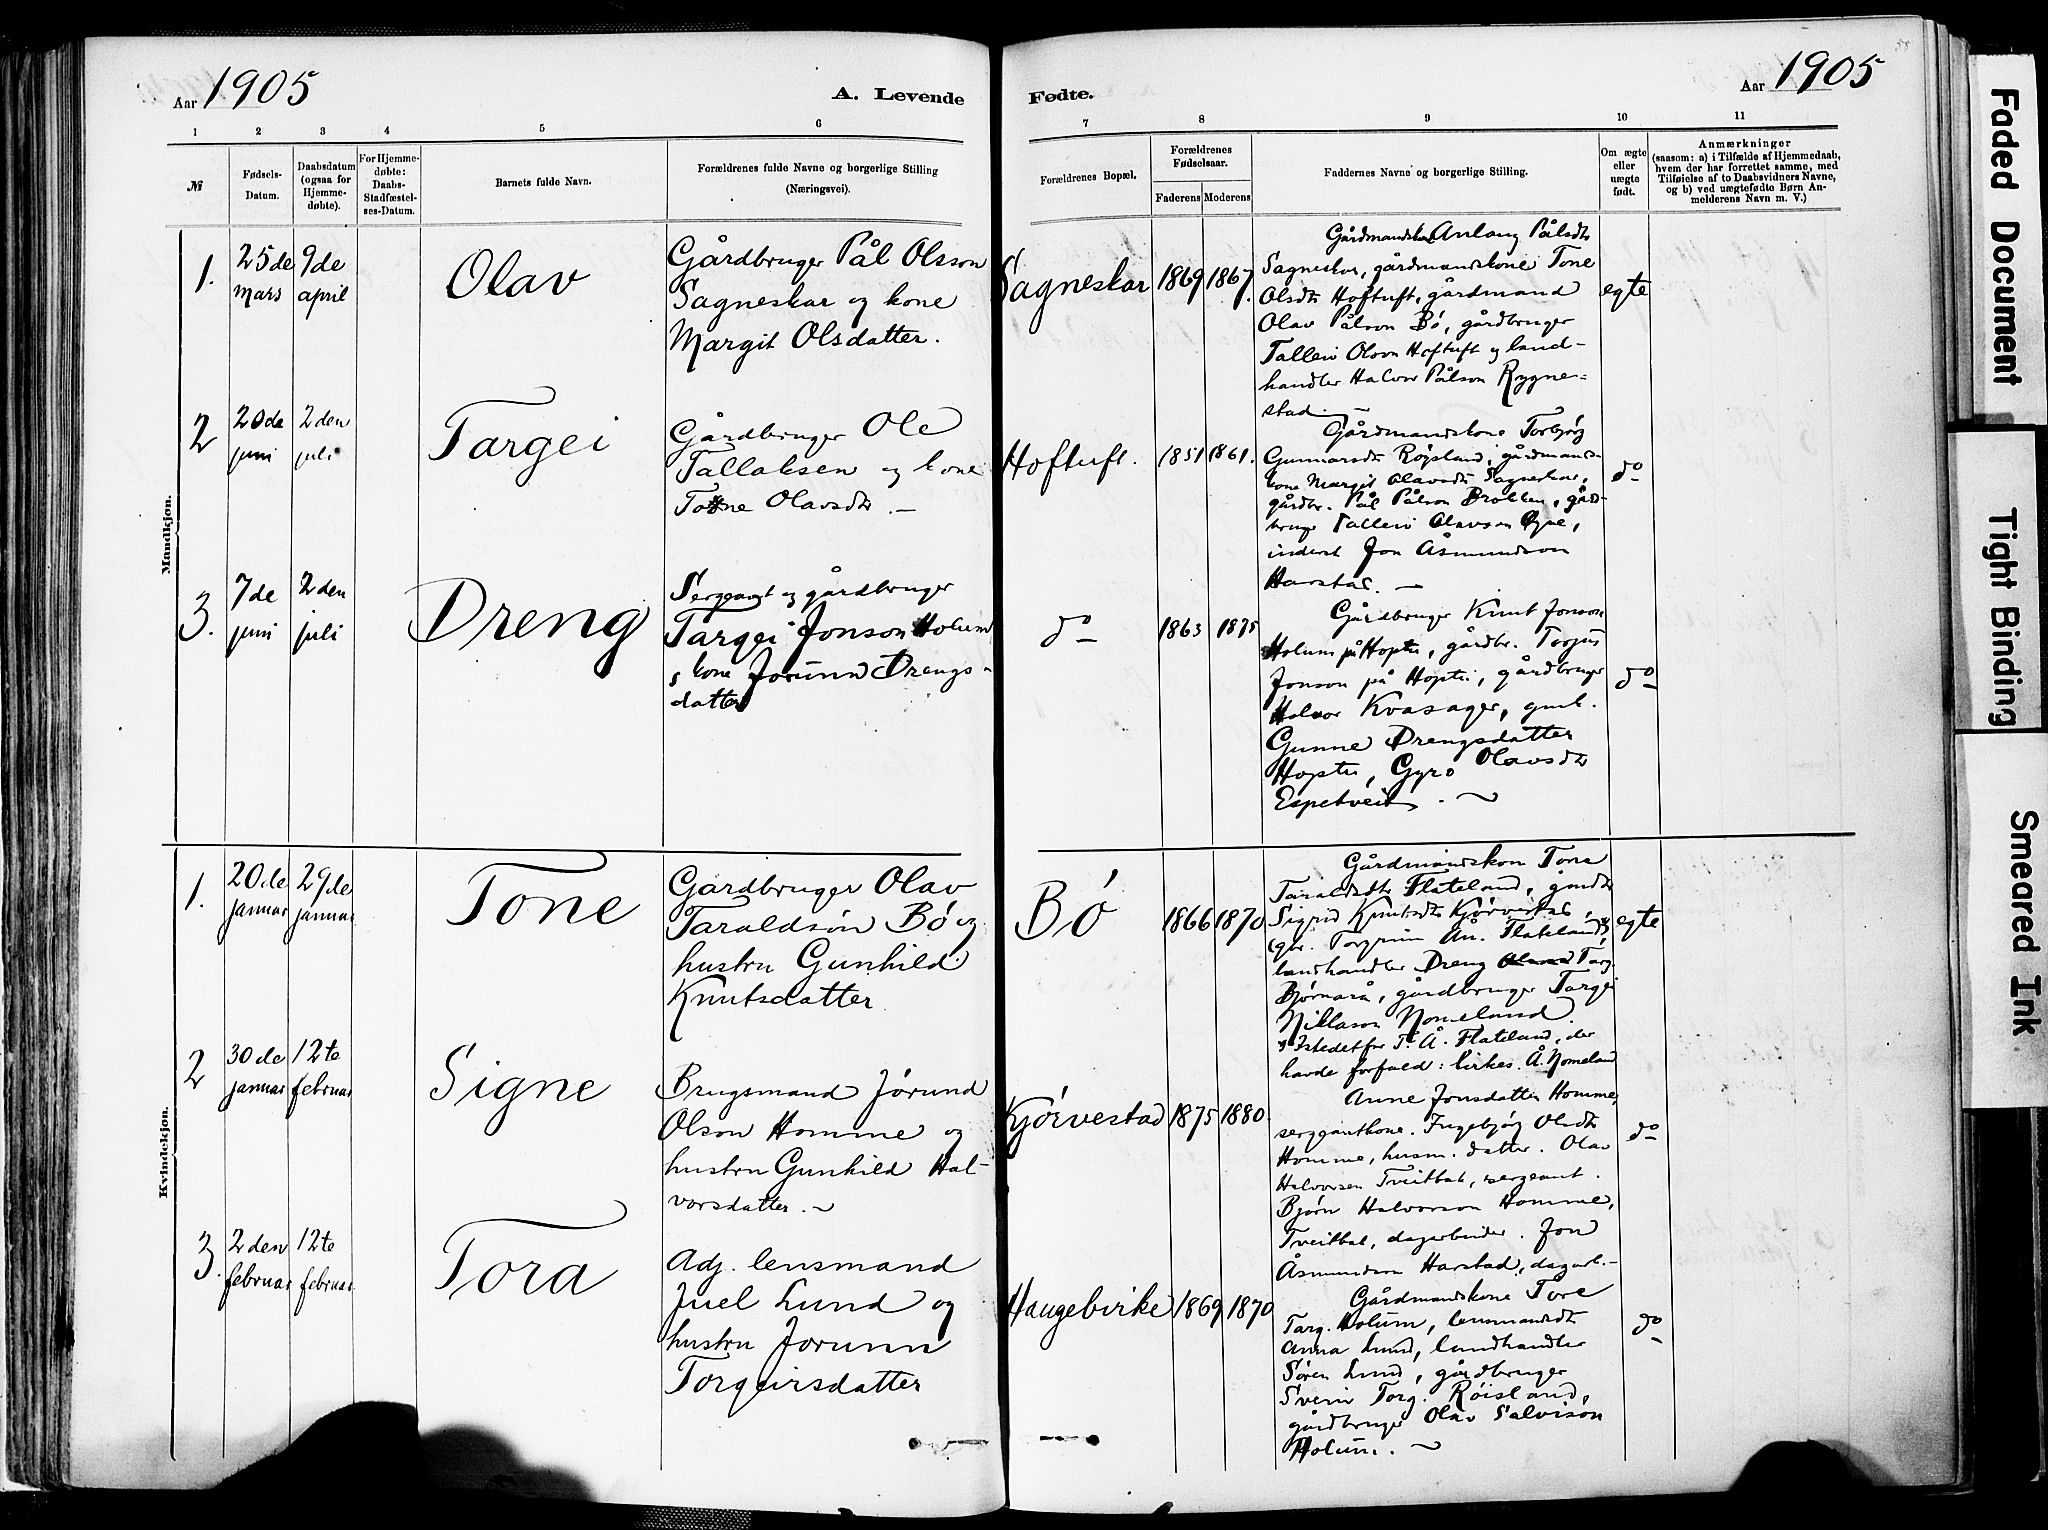 58
Aar 1905
A. Levende
Fødte.
Aar 1905
1 2 3 4 5 6 7 8 9 10 11
№
Fødsels-
Datum.
Daabsdatum
(ogsaa for
Hjemme-
døbte).
For Hjemme-
døbte:
Daabs-
Stadfæstel-
ses-Datum.
Barnets fulde Navn.
Forældrenes fulde Navne og borgerlige Stilling
(Næringsvei).
Forældrenes Bopæl.
Forældrenes
Fødselsaar.
Faderens Moderens
Faddernes Navne og borgerlige Stilling.
Om ægte
eller
uægte
født.
Anmærkninger
(saasom: a) i Tilfælde af Hjemmedaab,
hvem der har forrettet samme, med
Tilføielse af to Daabsvidners Navne,
og b) ved uægtefødte Børn An-
melderens Navn m. V.)
Mandkjøn.
1.
25de
mars
9de
april
Olav
Gårdbruger Pål Olsson
Sagneskar og kone
Margit Olsdatter.
Sagneskar
1869
1867.
Anlaug Pålsdtr
Sagneskar, gårdmandskone Tone
Olsdtr Hoftuft, gårdmand
Olav Pålson Bö, gårdbruger
Talleiv Olson Hoftuft og land-
handler Halvor Pålson Rygne-
stad.
egte
2
20de
juni
2den
juli
Targei
Gårdbruger Ole
Tallaksen og kone
Tone Olavsdtr. —
Hoftuft.
1851
1861.
Gårdmandskone Torbjörg
Gunnarsdtr Röysland, gårdmands-
kone Margit Olavsdtr Sagneskar,
gårdbr. Pål Pålson Brokken, gård-
bruger Talleiv Olavson
inderst Jon Åsmundson
Harstad. —
do
3.
7de
juni
2den
juli
Dreng
Sergeant og gårdbruger
Targei Jonson Holum
kone Jorunn Drengs-
datter
do
1863
1875
Gårdbruger Knut Jonson
Holum på Hoptu, gårdbr. Torjus
Jonson på Hoptu, gårdbruger
Halvor Kvasager, gmk.
Gunne Drengsdatter
Hoptu, Gyro Olavsdtr
Espetveit.
do
Kvindekjøn.
1.
20de
januar
29de
januar
Tone
Gårdbruger Olav
Taraldsön Bö og
hustru Gunhild
Knutsdatter
Bö
1866
1870
Gårdmandskon Tone
Taraldsdtr Flateland, gårdtr
Sigrid Knutsdtr Kjörvestad,
gbr. Torgrim Ån. Flateland,
landhandler Dreng Targ.
Bjørnarå, gårdbruger Targei
Niklason Nomeland.
Istedetfor T. Å. Flateland, der
havde forfald: kirkes. Å. Nomeland
egte
2
30de
januar
12te
februar
Signe
Brugsmand Jörund
Olson Homme og
hustru Gunhild Hal-
vorsdatter. —
Kjörvestad
1875
1880.
Anne Jonsdatter Homme,
sergeantkone. Ingebjörg Olsdtr
Homme, husm. datter. Olav
Halvorsen Tveitbak, sergeant.
Bjørn Halvorson Homme,
Tveitbak, dagarbeider. Jon
Åsmundson Harstad, dagarb. —
do
3.
2den
februar
12te
februar
Tora
Adj. lensmand
Juel Lund og
hustru Jorunn
Torgeirsdatter
Haugebirke
1869
1870
Gårdmandskone Tore
Targ. Holum, lensmandsdtr
Anna Lund, landhandler
Sören Lund, gårdbruger
Svein Torg. Röisland,
gårdbruger Olav Salvisön
Holum. —
do
Faded Document
Tight Binding
Smeared Ink